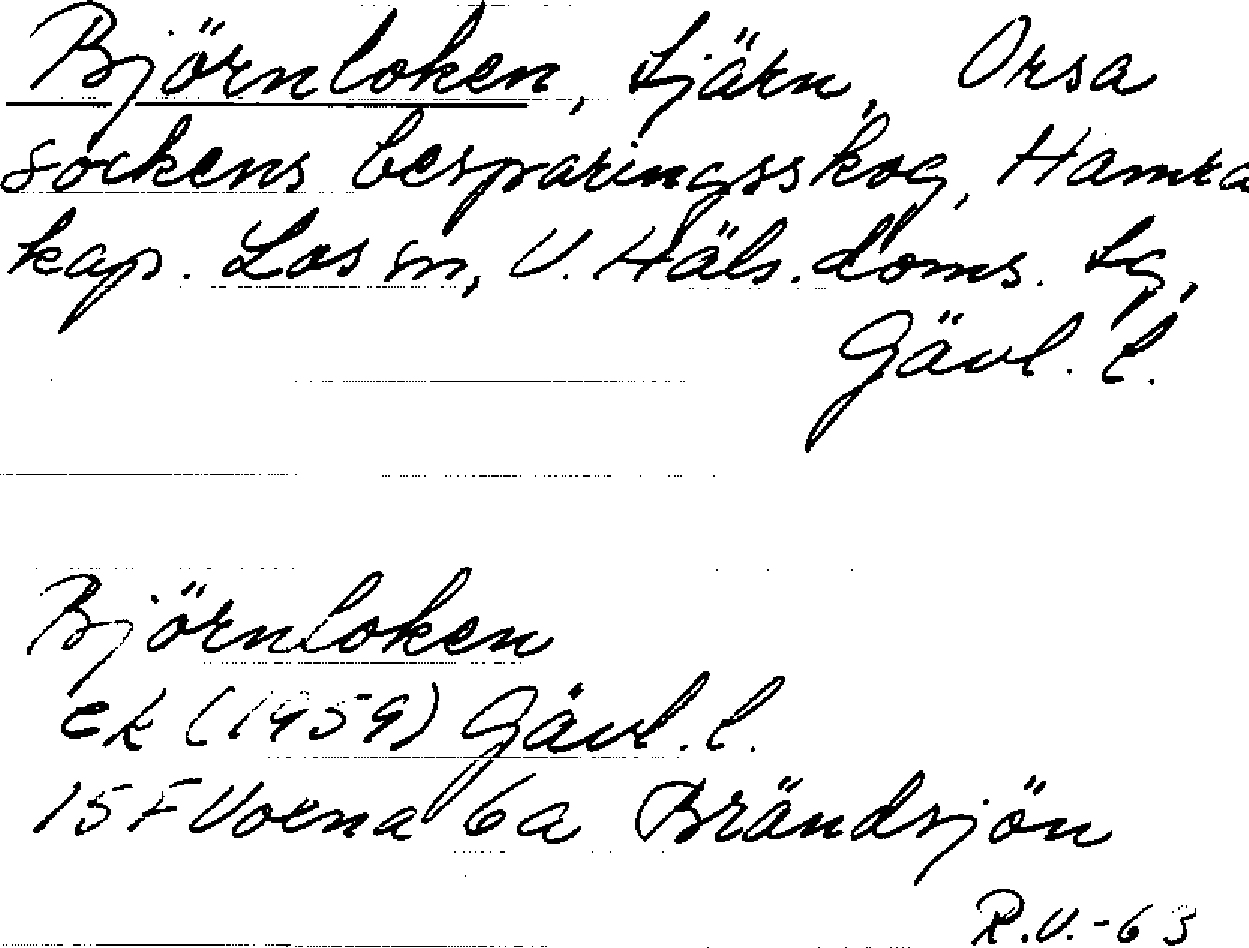 Björnloken, tjärn, Orsa
sockens besparingsskog, Hamra
kap. Los sn, V. Häls. doms. tg,
Gävl. l.
Björnloken
ek (1959) Gävl. l.
15 F Voxna 6a Brändsjön
R.V. -63